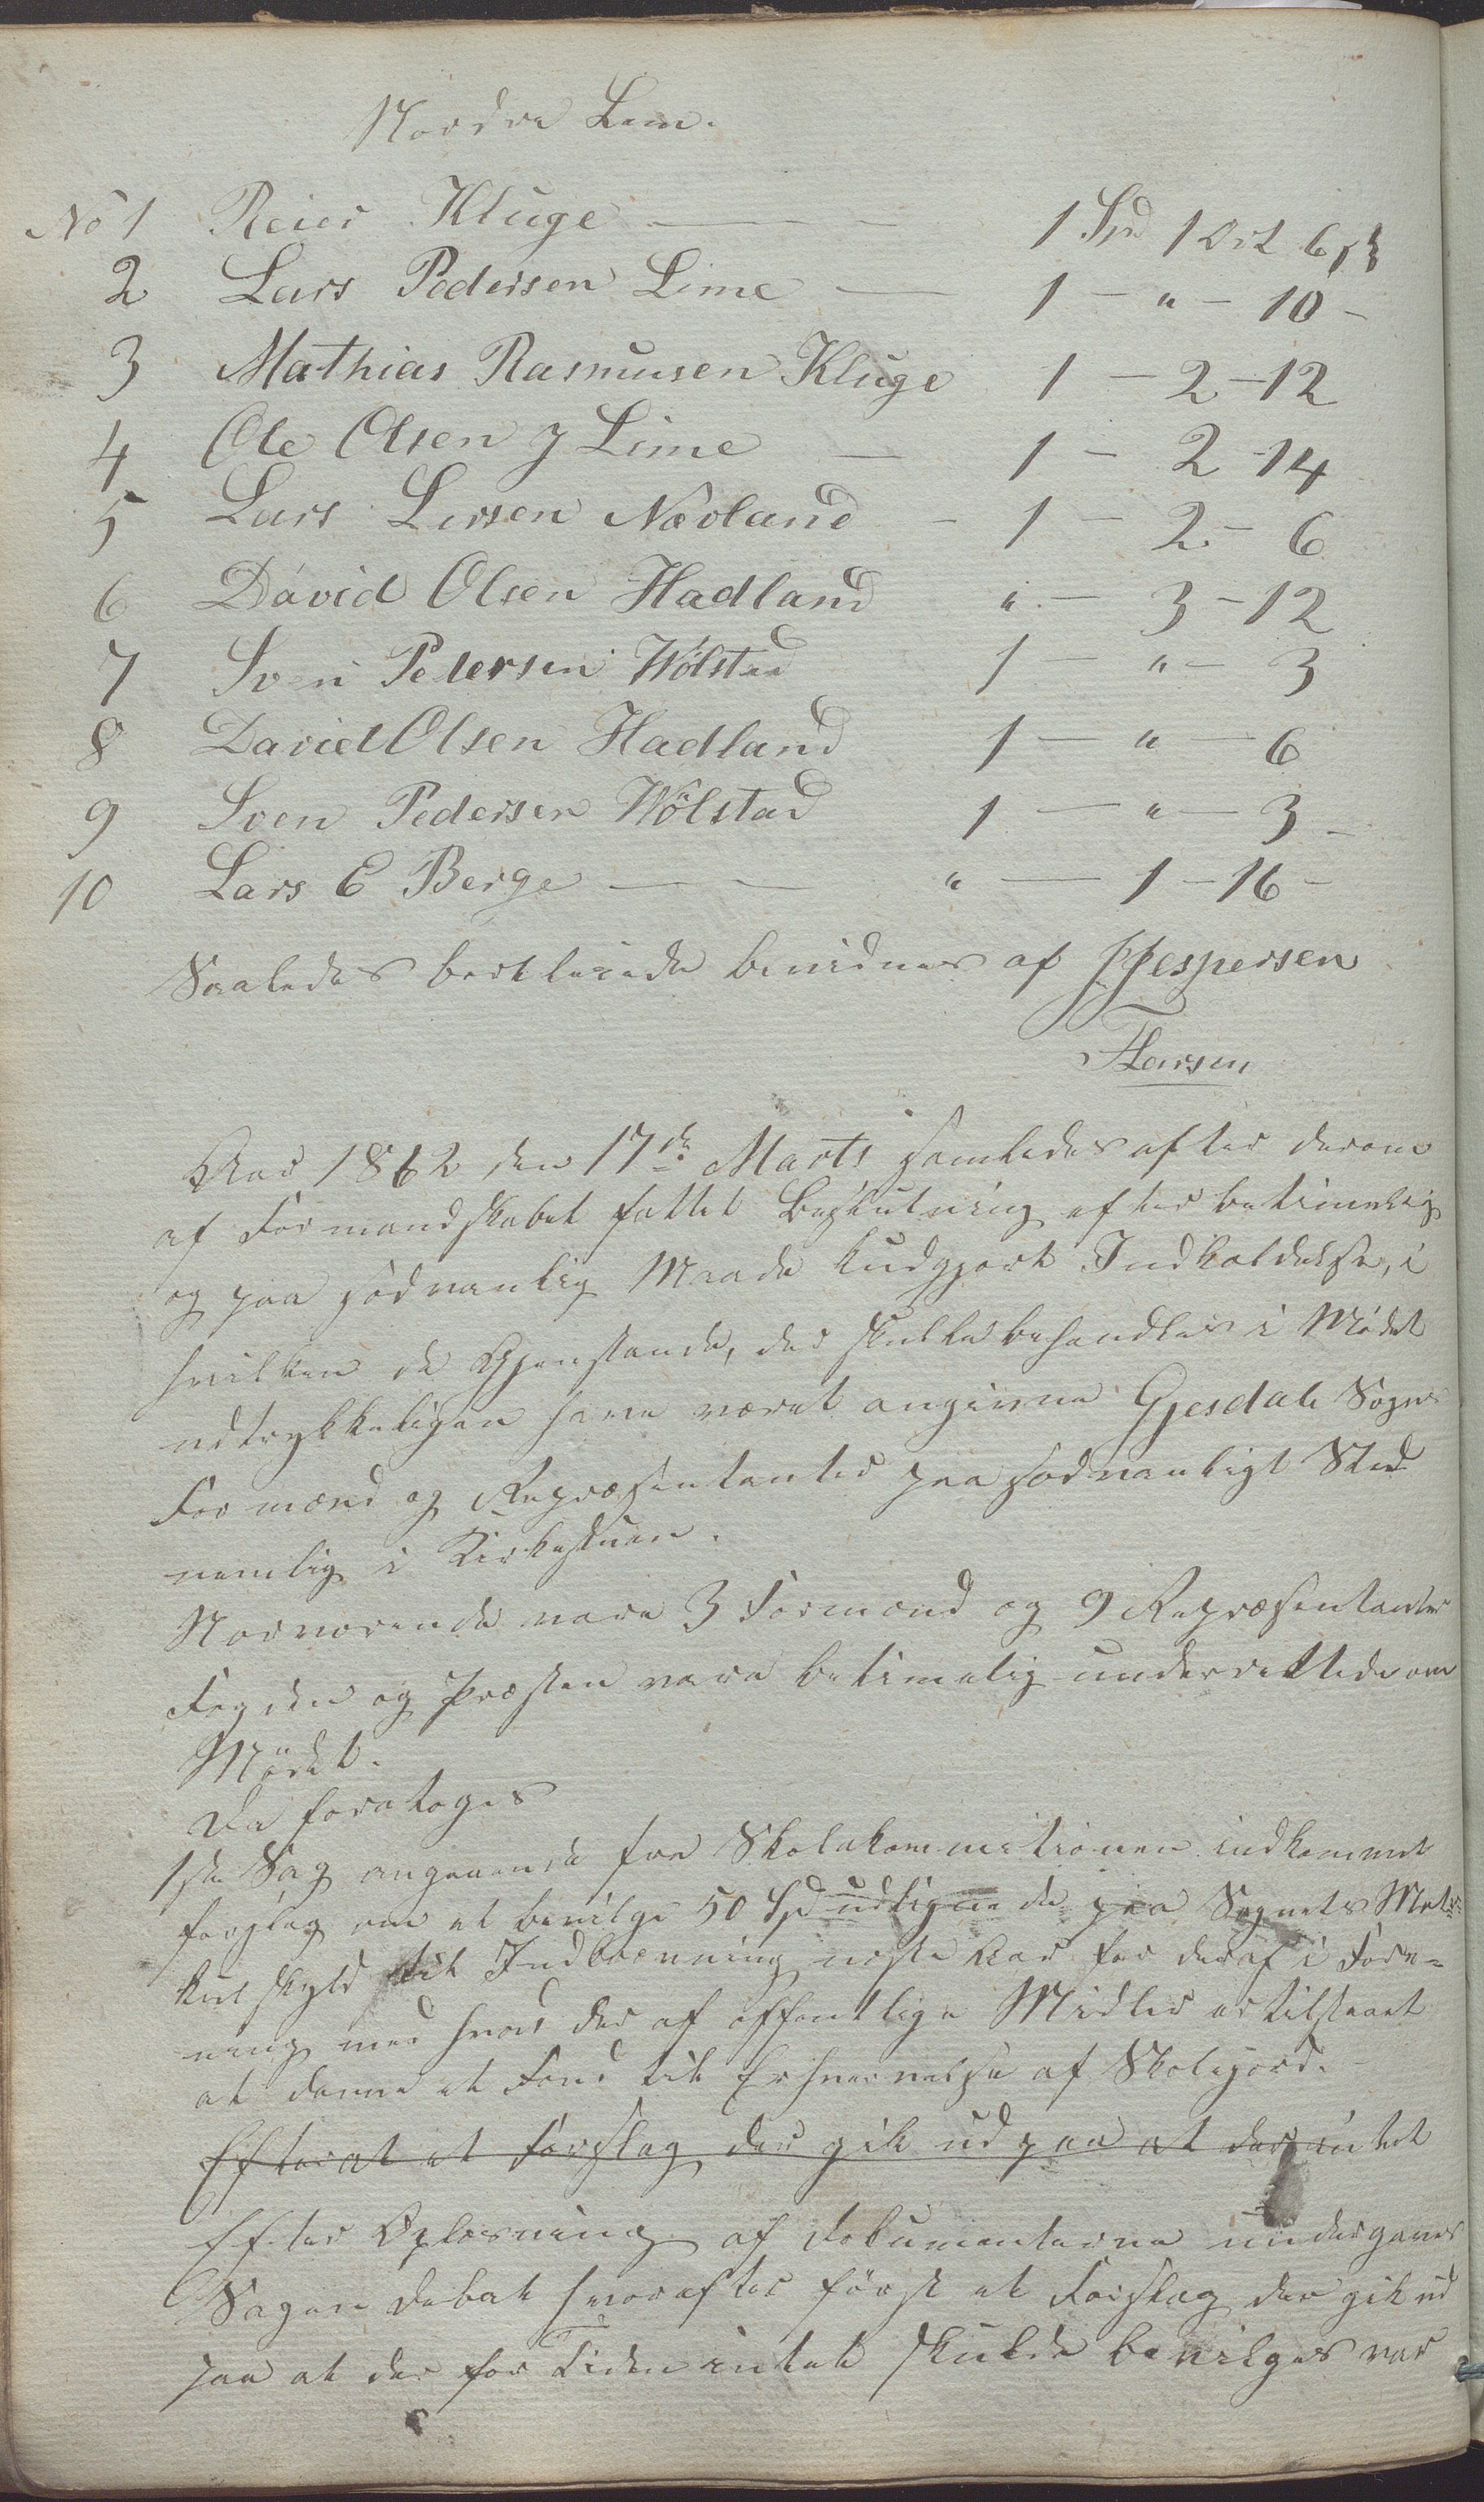 Nordre Lem.
No 1 Reier Kluge — — 1 Spd 1 Ort 6 ß
2 Lars Pedersen Lime — 1 — " — 10 —
3 Mathias Rasmusen Kluge 1 — 2 — 12
4 Ole Olsen J Lime — 1 — 2 - 14
5 Lars Larsen Nævland - 1 — 2 — 6
6 David Olsen Hadland " — 3 — 12
7 Sven Petersen Wølstad 1 — " — 3
8 David Olsen Hadland 1 — " — 6
9 Sven Pedersen Wølstad 1 — " — 3 —
10 Lars E Berge — — " — 1 — 16 —
Saaledes bortleiede bevidnes af Jespersen
Larsen
Aar 1862 den 17de Marts samledes efter derom
af Formandskabet fattet Beslutning efter betimelig
og paa sædvanlig Maade kundgjort Indkaldelse, i
hvilken de Gjenstande, der skulle behandles i Mödet
udtrykkeligen have været angivne Gjesdals Sogns
Formænd og Repræsentanter paa sædvanligt Sted
nemlig i Kirkestuen.
Nærværende vare 3 Formænd og 9 Repræsentanter
Fogden og Præsten vare betimelig underrettede om
Mödet.
Da foretoges
1ste Sag angaaende fra Skolekommissionen indkommet
forslag om at bevilge 50 Spd udlignede paa Sognets Matr=
kulskyld til Indbetaling næste Aar for deraf i Fore=
ning med hvad der af offentlige Midler er tilstaaet
at danne et Fond til Erhvervelse af Skolejord.
Efterat et Forslag, der gik ud paa at der intet
Efter Oplæsning af Dokumenterne undergaves
Sagen Debat hvorefter först et Forslag der gik ud
paa at der for Tiden intet skulde bevilges var